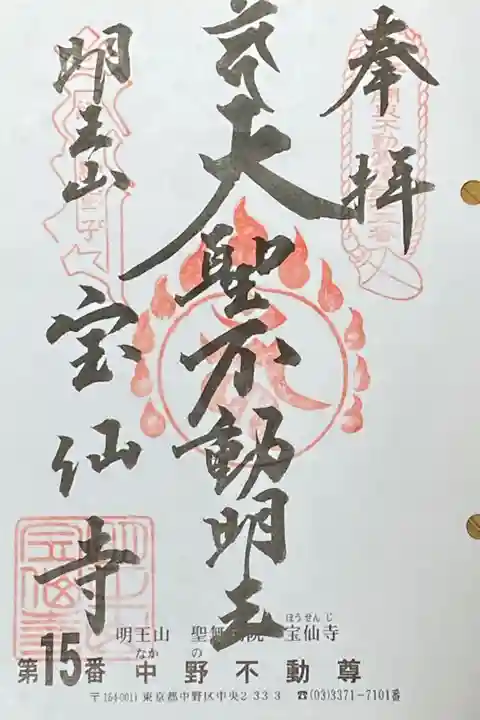 奉拝
大聖不動明王
明王山
宝仙寺
明王山 聖無動院 宝仙寺
ほうせんじ
第15番 中野不動尊
なかの
〒164-0011 東京都中野区中央2-33-3 ☎(03)3371-7101番